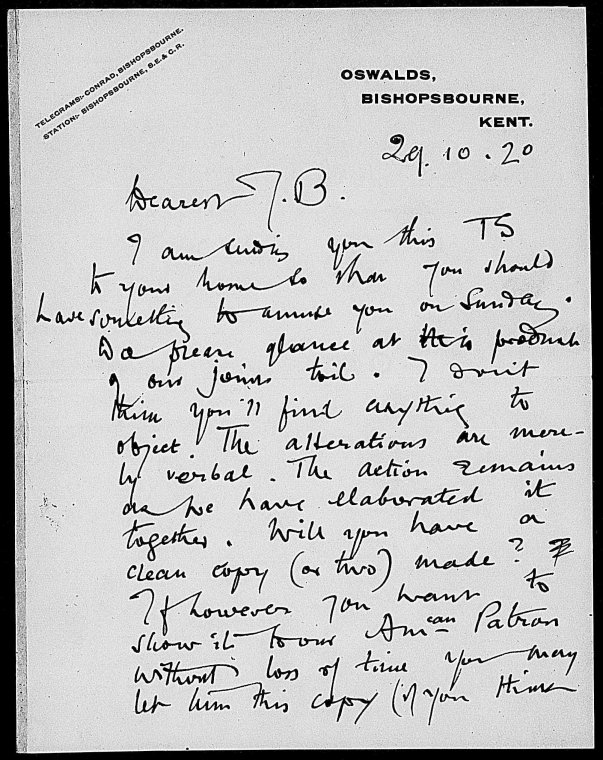 TELEGRAMS:- CONRAD, BISHOPSBOURNE.
STATION:- BISHOPSBOURNE, S.E. & C.R.
OSWALDS,
BISHOPSBOURNE,
KENT.
29.10.20
Dearest J.B.
I am sending you this TS
to your home so that you should
have something to amuse you on Sunday.
Do please glance at this product
of our joint toil. I don't
think you'll find anything to
object. The alterations are mere-
ly verbal. The action remains
as we have elaborated it
together. Will you have a
clean copy (or two) made?
If however you want to
show it to our Amcan Patron
without loss of time you may
let him this copy (if you think